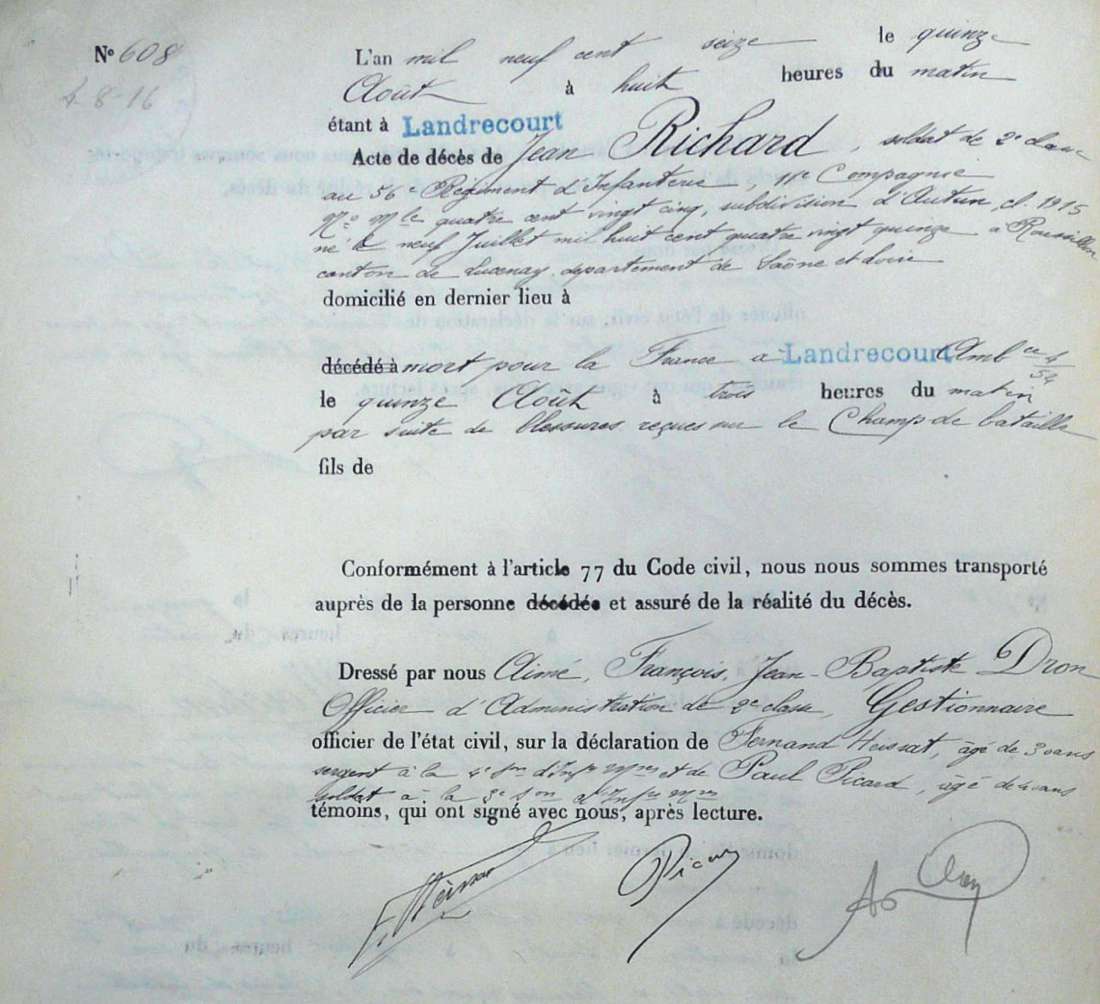 N° 608
L'an mil neuf cent seize le quinze
8-16
Août à huit heures du matin
étant à Landrecourt
Acte de décès de Jean Richard, soldat de 2e classe
au 56e Régiment d'Infanterie, 11e Compagnie
No Mle quatre cent vingt cinq, subdivision d'Autun, cl. 1915
né le neuf Juillet mil huit cent quatre vingt quinze à Roussillon
canton de Lucenay, département de Saône et Loire
domicilié en dernier lieu à
décédé à mort pour la France à Landrecourt Ambce 4/54
le quinze Août à trois heures du matin
par suite de blessures reçues sur le Champ de bataille
fils de
Conformément à l'article 77 du Code civil, nous nous sommes transporté
auprès de la personne décédée et assuré de la réalité du décès.
Dressé par nous Aimé, François, Jean-Baptiste Dron
Officier d'Administration de 2e classe, Gestionnaire
officier de l'état civil, sur la déclaration de Fernand âgé de ans
sergent à la 4e Son d'Infrs Mres et de Paul Picard, âgé de ans
soldat à la Son d'Infrs Mres
témoins, qui ont signé avec nous, après lecture.
Picard